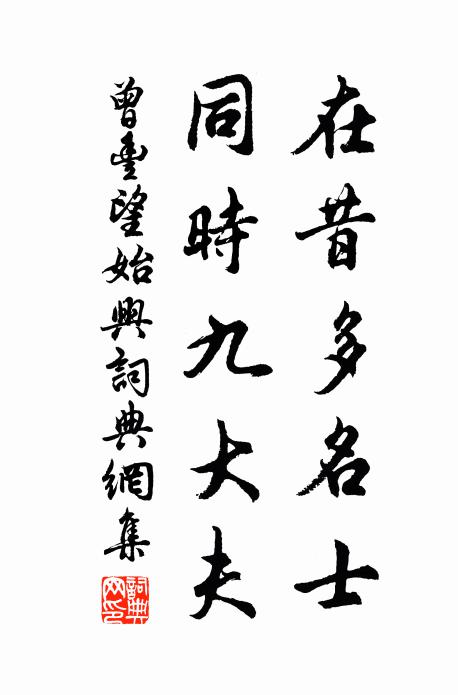 在昔多名士
同時九大夫
曾豐望始興詞典網集
詞典网印